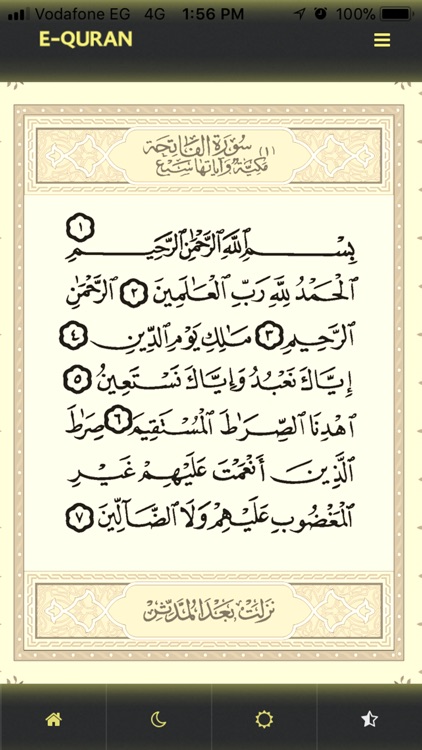 Vodafone EG 4G 1:56 PM 100%
E-QURAN
سُورَةُ الفَاتِحَة (١)
مَكيَّة وَآيَاتهَا سَبْع
بِسْمِ ٱللَّهِ ٱلرَّحْمَٰنِ ٱلرَّحِيمِ ١
ٱلْحَمْدُ لِلَّهِ رَبِّ ٱلْعَٰلَمِينَ ٢ ٱلرَّحْمَٰنِ
ٱلرَّحِيمِ ٣ مَٰلِكِ يَوْمِ ٱلدِّينِ ٤
إِيَّاكَ نَعْبُدُ وَإِيَّاكَ نَسْتَعِينُ ٥
ٱهْدِنَا ٱلصِّرَٰطَ ٱلْمُسْتَقِيمَ ٦ صِرَٰطَ
ٱلَّذِينَ أَنْعَمْتَ عَلَيْهِمْ غَيْرِ
ٱلْمَغْضُوبِ عَلَيْهِمْ وَلَا ٱلضَّآلِّينَ ٧
نَزَلَتْ بَعْدَ المُدَّثِّر